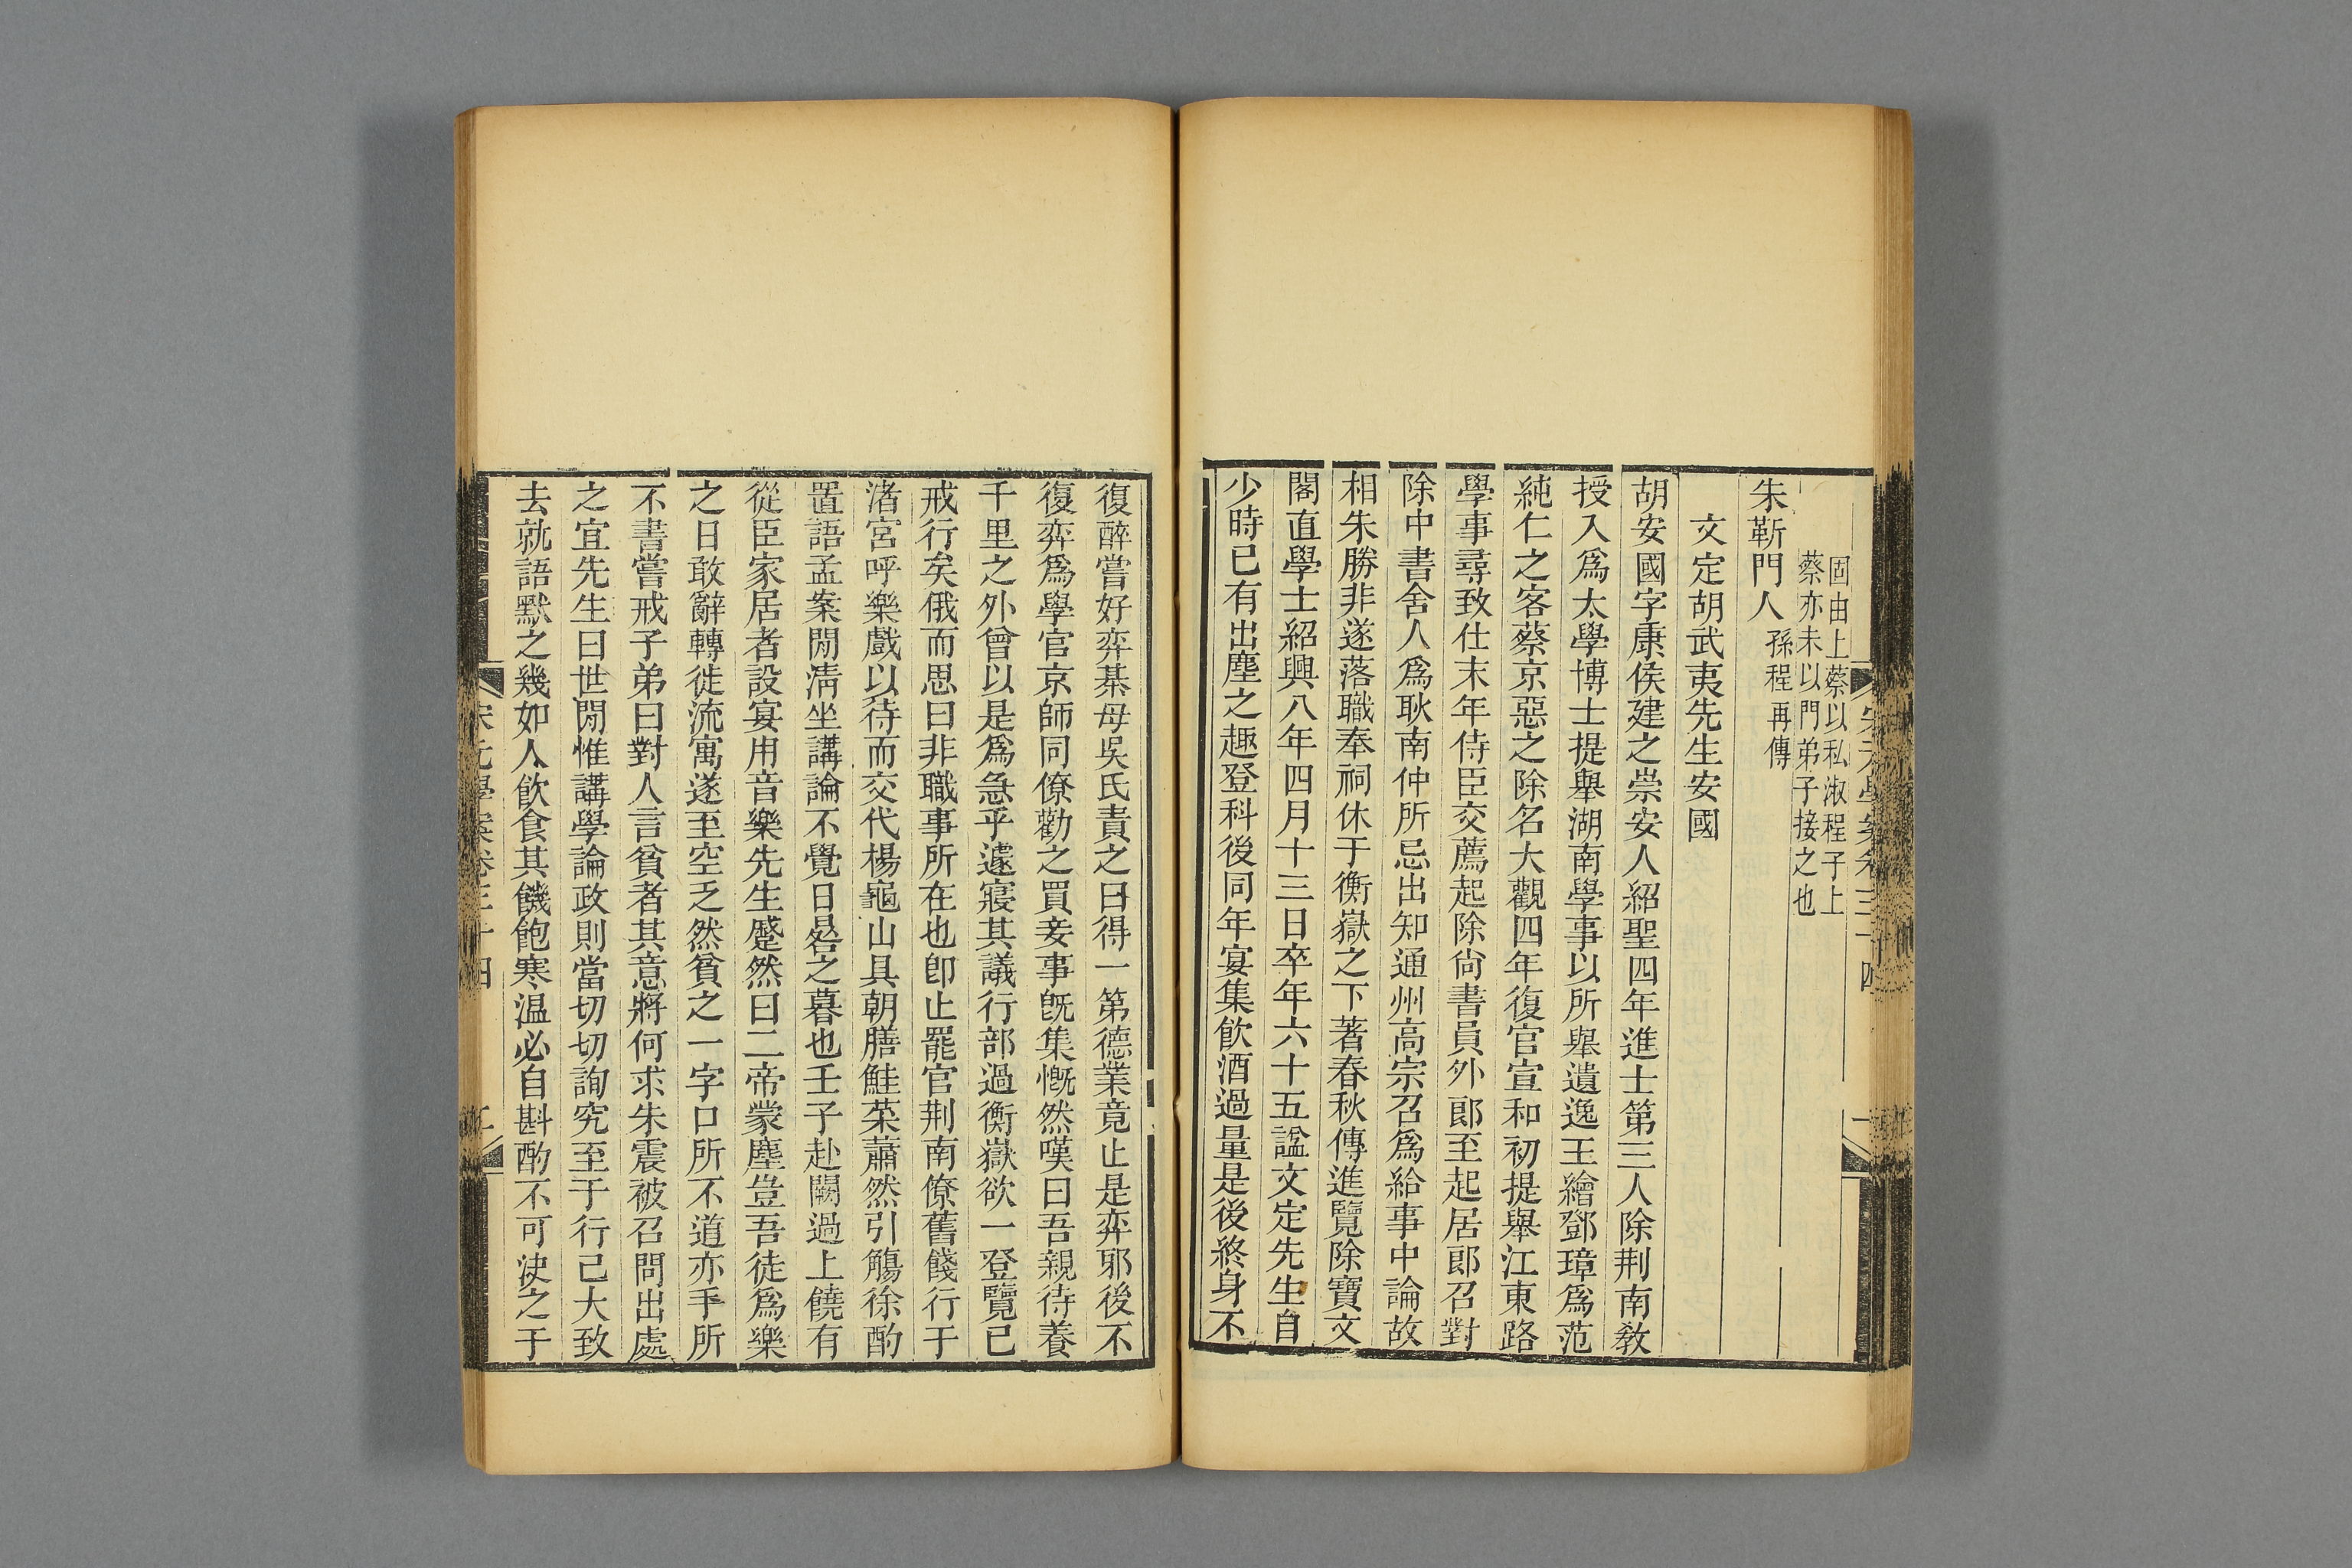 固由上蔡以私淑程子上
蔡亦未以門弟子接之也
朱靳門人 孫程再傳
文定胡武夷先生安國
胡安國字康侯建之崇安人紹聖四年進士第三人除荆南敎
授入爲太學博士提舉湖南學事以所舉遺逸王繪鄧璋爲范
純仁之客蔡京惡之除名大觀四年復官宣和初提舉江東路
學事尋致仕末年侍臣交薦起除尙書員外郎至起居郎召對
除中書舍人爲耿南仲所忌出知通州高宗召爲給事中論故
相朱勝非遂落職奉祠休于衡嶽之下著春秋傳進覽除寶文
閣直學士紹興八年四月十三日卒年六十五諡文定先生自
少時已有出塵之趣登科後同年宴集飮酒過量是後終身不
復醉嘗好弈棊母吳氏責之曰得一第德業竟止是弈耶後不
復弈爲學官京師同僚勸之買妾事旣集慨然嘆曰吾親待養
千里之外曾以是爲急乎遽寢其議行部過衡嶽欲一登覽已
戒行矣俄而思曰非職事所在也卽止罷官荆南僚舊餞行于
渚宮呼樂戲以待而交代楊龜山具朝膳鮭菜蕭然引觴徐酌
置語孟案閒淸坐講論不覺日晷之暮也壬子赴闕過上饒有
從臣家居者設宴用音樂先生蹙然曰二帝蒙塵豈吾徒爲樂
之日敢辭轉徙流寓遂至空乏然貧之一字口所不道亦手所
不書嘗戒子弟曰對人言貧者其意將何求朱震被召問出處
之宜先生曰世閒惟講學論政則當切切詢究至于行己大致
去就語默之幾如人飮食其饑飽寒温必自斟酌不可決之于
宋元學案卷三十四